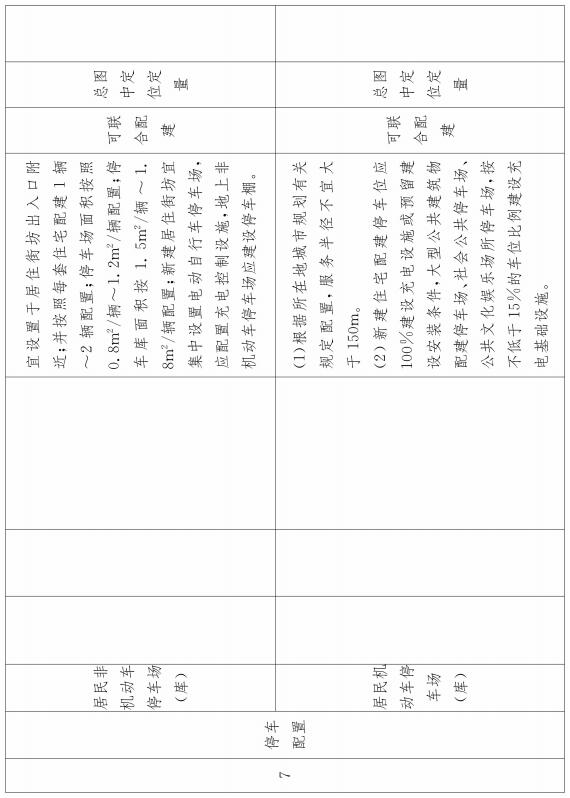 7
停车
配置
居民非
机动车
停车场
(库)
宜设置于居住街坊出入口附
近;并按照每套住宅配建1辆
～2辆配置;停车场面积按照
0.8m²/辆～1.2m²/辆配置;停
车库面积按1.5m²/辆～1.
8m²/辆配置;新建居住街坊宜
集中设置电动自行车停车场,
应配置充电控制设施,地上非
机动车停车场应建设停车棚。
可联
合配
建
总图
中定
位定
量
居民机
动车停
车场
(库)
(1)根据所在地城市规划有关
规定配置,服务半径不宜大
于150m。
(2)新建住宅配建停车位应
100%建设充电设施或预留建
设安装条件,大型公共建筑物
配建停车场、社会公共停车场、
公共文化娱乐场所停车场,按
不低于15%的车位比例建设充
电基础设施。
可联
合配
建
总图
中定
位定
量